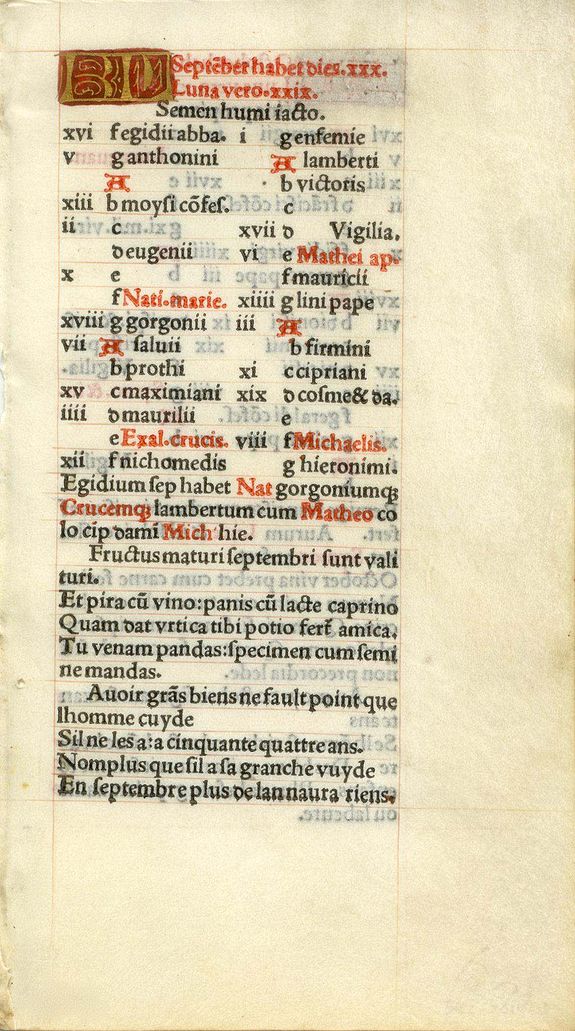 KL Septēber habet dies.xxx.
Luna vero.xxix.
Semen humi iacto.
xvi f egidii abba. i g enfemie
v g anthonini A lamberti
A b victoris
xiii b moysi cōfes. c
ii c xvii d Vigilia.
d eugenii vi e Mathei ap.
x e f mauricii
f Nati.marie. xiiii g lini pape
xviii g gorgonii iii A
vii A saluii b firmini
b prothi xi c cipriani
xv c maximiani xix d cosme & da.
iiii d maurilii e
e Exal.crucis. viii f Michaelis.
xii f nichomedis g hieronimi.
Egidium sep habet Nat gorgoniumqꝫ
Crucemqꝫ lambertum cum Matheo co
lo cip dami Mich' hie.
Fructus maturi septembri sunt vali
turi.
Et pira cū vino:panis cū lacte caprino
Quam dat vrtica tibi potio fert̄ amica.
Tu venam pandas:specimen cum semi
ne mandas.
Auoir grās biens ne fault point que
lhomme cuyde
Sil ne les a:a cinquante quattre ans.
Nomplus que sil a sa granche vuyde
En septembre plus de lan naura riens.